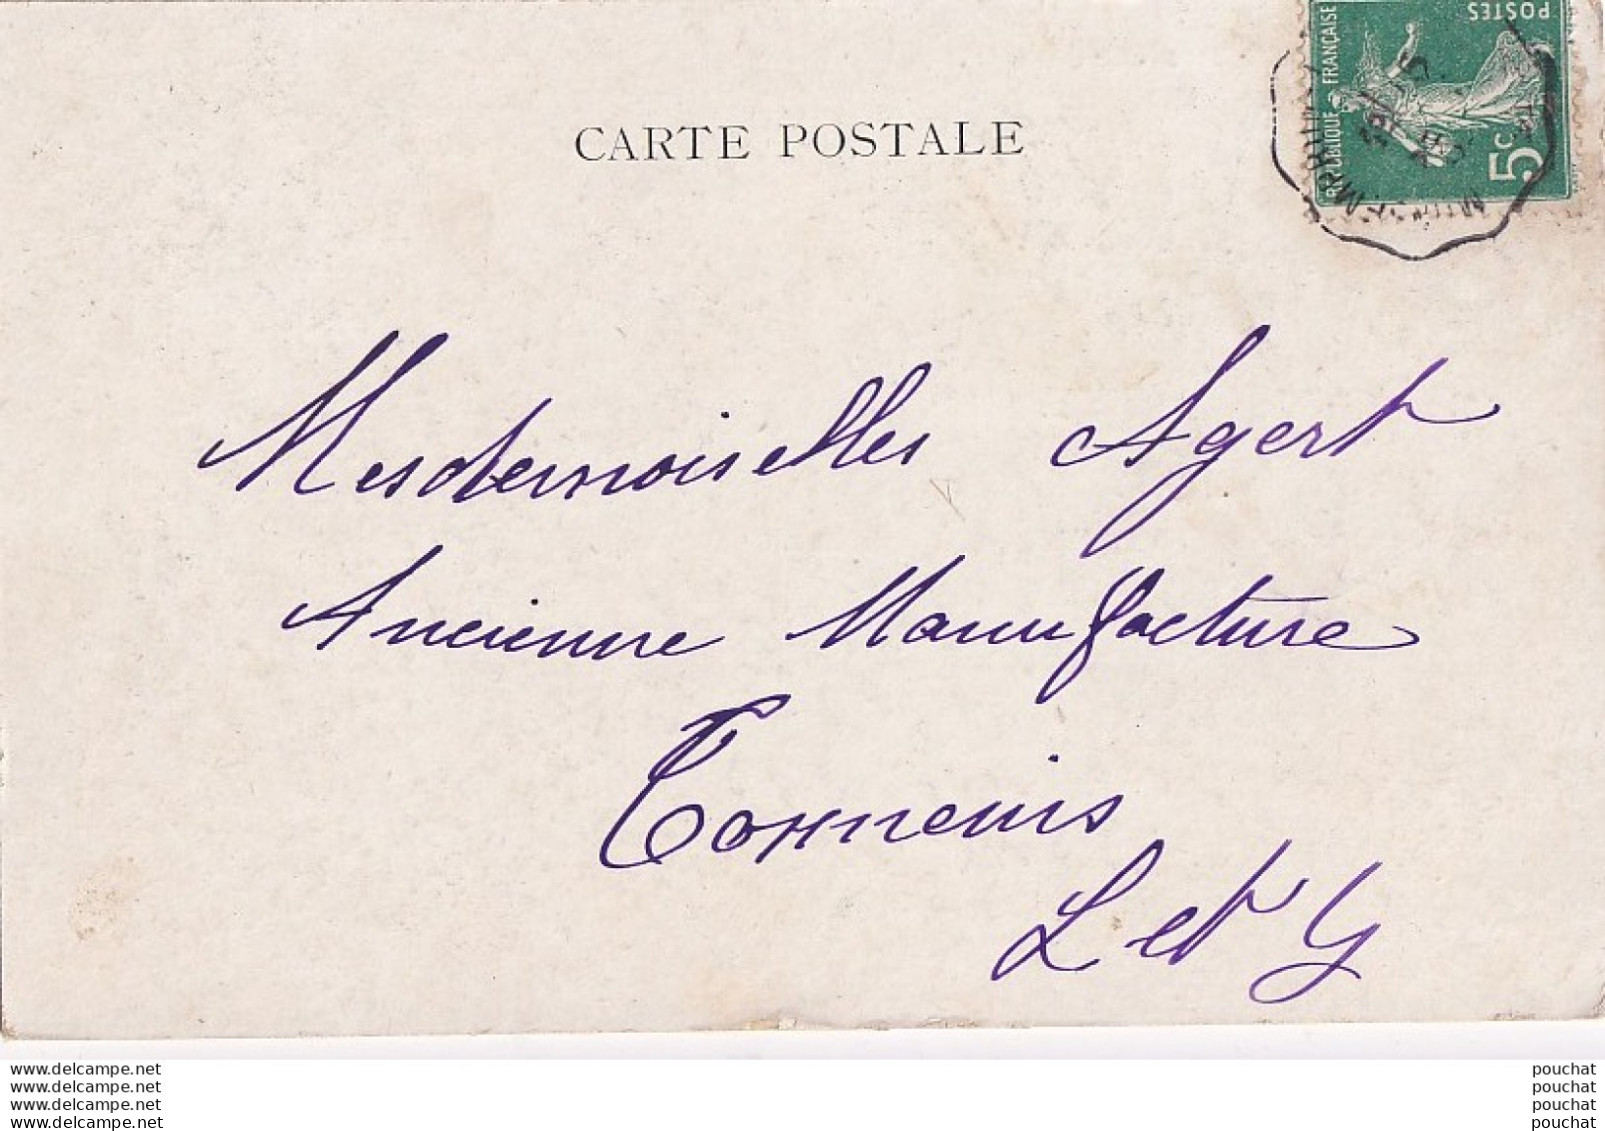 POSTES
RÉPUBLIQUE FRANÇAISE
5c
CARTE POSTALE
Mesdemoiselles Agert
Ancienne Manufacture
Tonneins
L et G
www.delcampe.net
www.delcampe.net
www.delcampe.net
www.delcampe.net
pouchat
pouchat
pouchat
pouchat